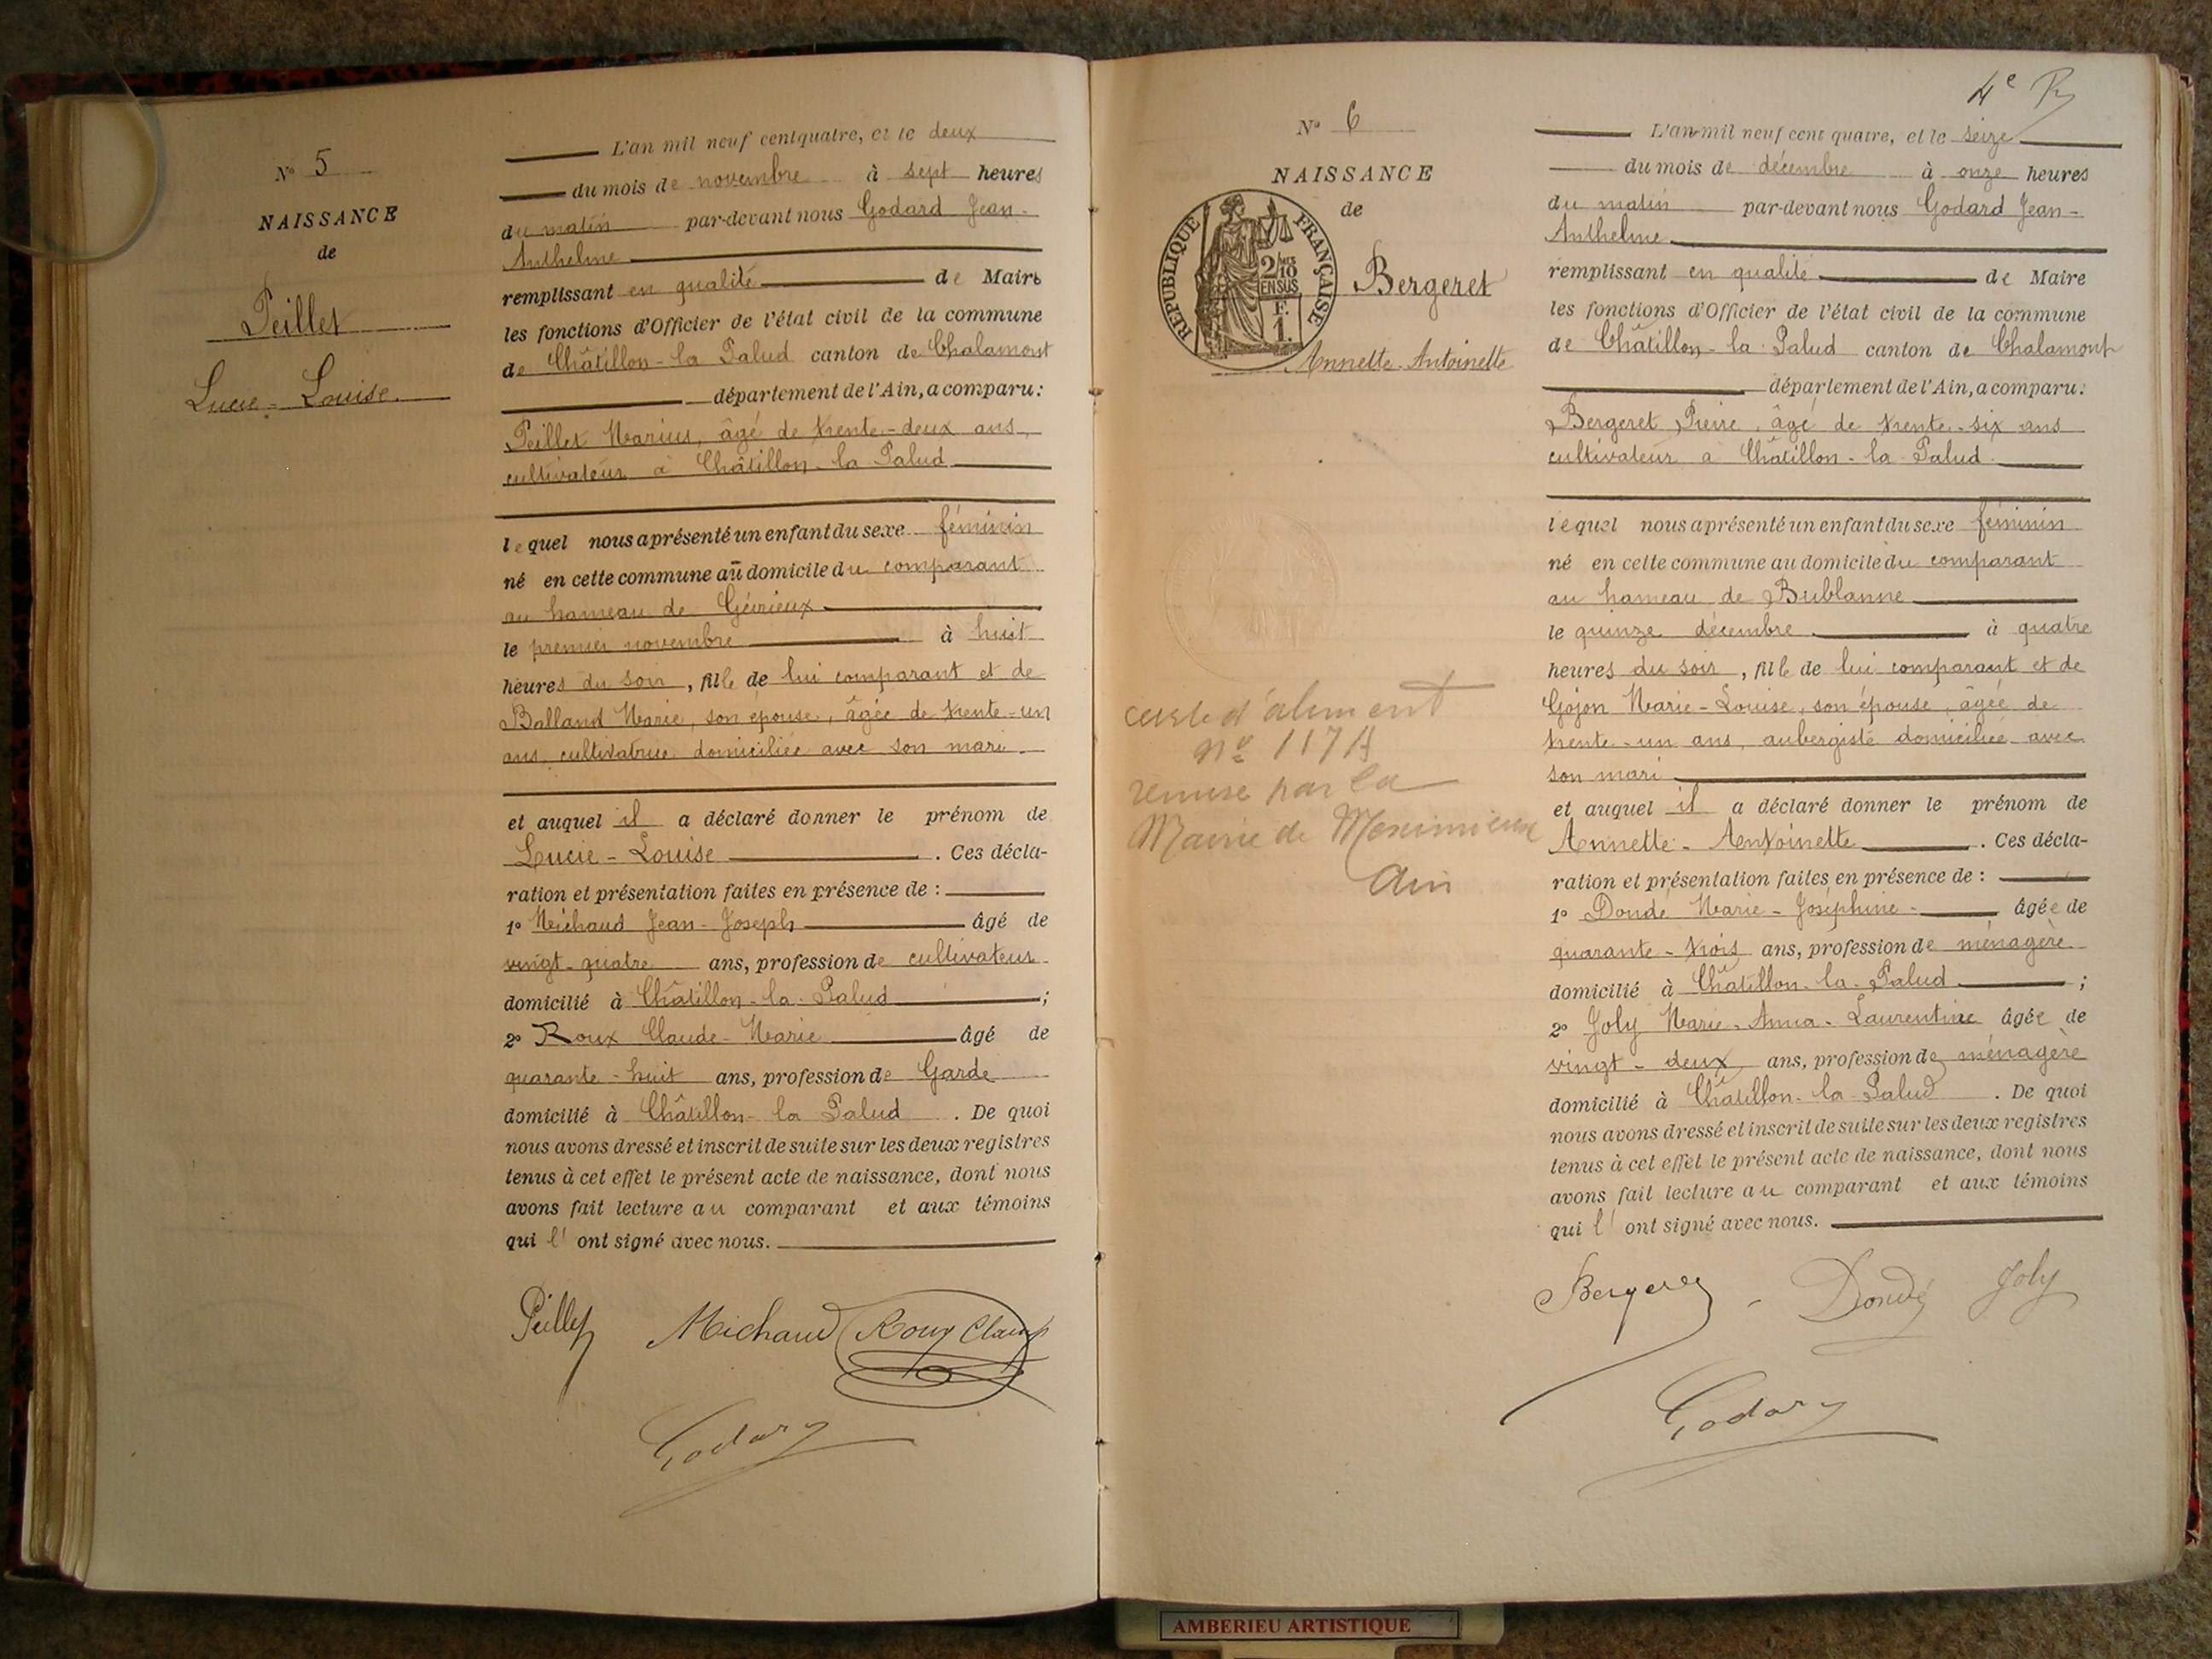 N° 5
NAISSANCE
de
Peillet
Lucie-Louise.
L'an mil neuf cent quatre, et le deux
du mois de novembre à sept heures
du matin par-devant nous Godard Jean-
Anthelme
remplissant en qualité de Maire
les fonctions d'Officier de l'état civil de la commune
de Châtillon-la Palud canton de Chalamont
département de l'Ain, a comparu:
Peillet Marius, âgé de trente-deux ans,
cultivateur à Châtillon-la Palud
lequel nous a présenté un enfant du sexe féminin
né en cette commune au domicile du comparant
au hameau de Gévrieux
le premier novembre à huit
heures du soir, fille de lui comparant et de
Balland Marie, son épouse, âgée de trente-un
ans, cultivatrice domiciliée avec son mari.
et auquel il a déclaré donner le prénom de
Lucie-Louise. Ces décla-
ration et présentation faites en présence de :
1° Michaud Jean-Joseph âgé de
vingt-quatre ans, profession de cultivateur
domicilié à Châtillon-la-Palud ;
2° Roux Claude-Marie âgé de
quarante-huit ans, profession de Garde
domicilié à Châtillon-la Palud. De quoi
nous avons dressé et inscrit de suite sur les deux registres
tenus à cet effet le présent acte de naissance, dont nous
avons fait lecture au comparant et aux témoins
qui l' ont signé avec nous.
Peillet Michaud Roux Claude
Godard
4e R
N° 6
NAISSANCE
de
REPUBLIQUE FRANÇAISE
2/10
EN SUS
F.
1.
Bergeret
Annette-Antoinette
carte d'aliment
n° 117 A
remise par la
Mairie de Meximieux
Ain
L'an mil neuf cent quatre, et le seize
du mois de décembre à onze heures
du matin par-devant nous Godard Jean-
Anthelme
remplissant en qualité de Maire
les fonctions d'Officier de l'état civil de la commune
de Châtillon-la-Palud canton de Chalamont
département de l'Ain, a comparu:
Bergeret Pierre, âgé de trente-six ans
cultivateur à Châtillon-la-Palud
lequel nous a présenté un enfant du sexe féminin
né en cette commune au domicile du comparant
au hameau de Bublanne
le quinze décembre à quatre
heures du soir, fille de lui comparant et de
Gojon Marie-Louise, son épouse, âgée de
trente-un ans, aubergiste domiciliée avec
son mari
et auquel il a déclaré donner le prénom de
Annette-Antoinette. Ces décla-
ration et présentation faites en présence de :
1° Doudé Marie-Joséphine âgée de
quarante-trois ans, profession de ménagère
domicilié à Châtillon-la-Palud ;
2° Joly Marie-Anna-Laurentine âgée de
vingt-deux ans, profession de ménagère
domicilié à Châtillon-la-Palud. De quoi
nous avons dressé et inscrit de suite sur les deux registres
tenus à cet effet le présent acte de naissance, dont nous
avons fait lecture au comparant et aux témoins
qui l' ont signé avec nous.
Bergeret Doudé Joly
Godard
AMBERIEU ARTISTIQUE